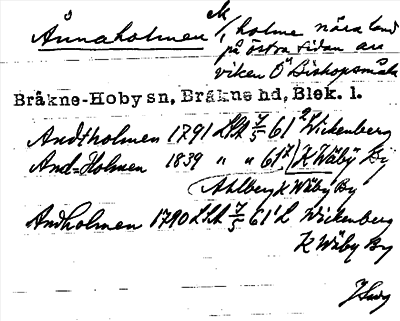 Ånnaholmen M/, holme nära land
på östra sidan av
viken Ö Bishopsmåla
Bråkne-Hoby sn, Bräkne hd, Blek. l.
Andtholmen 1791 LSA 7/5 61² Wickenberg
And-Holmen 1839 " " 61⁷) K Wäby By
Ahlberg K Wäby By
Andholmen 1790 LSA 7/5 61¹ L Wickenberg
K Wäby By